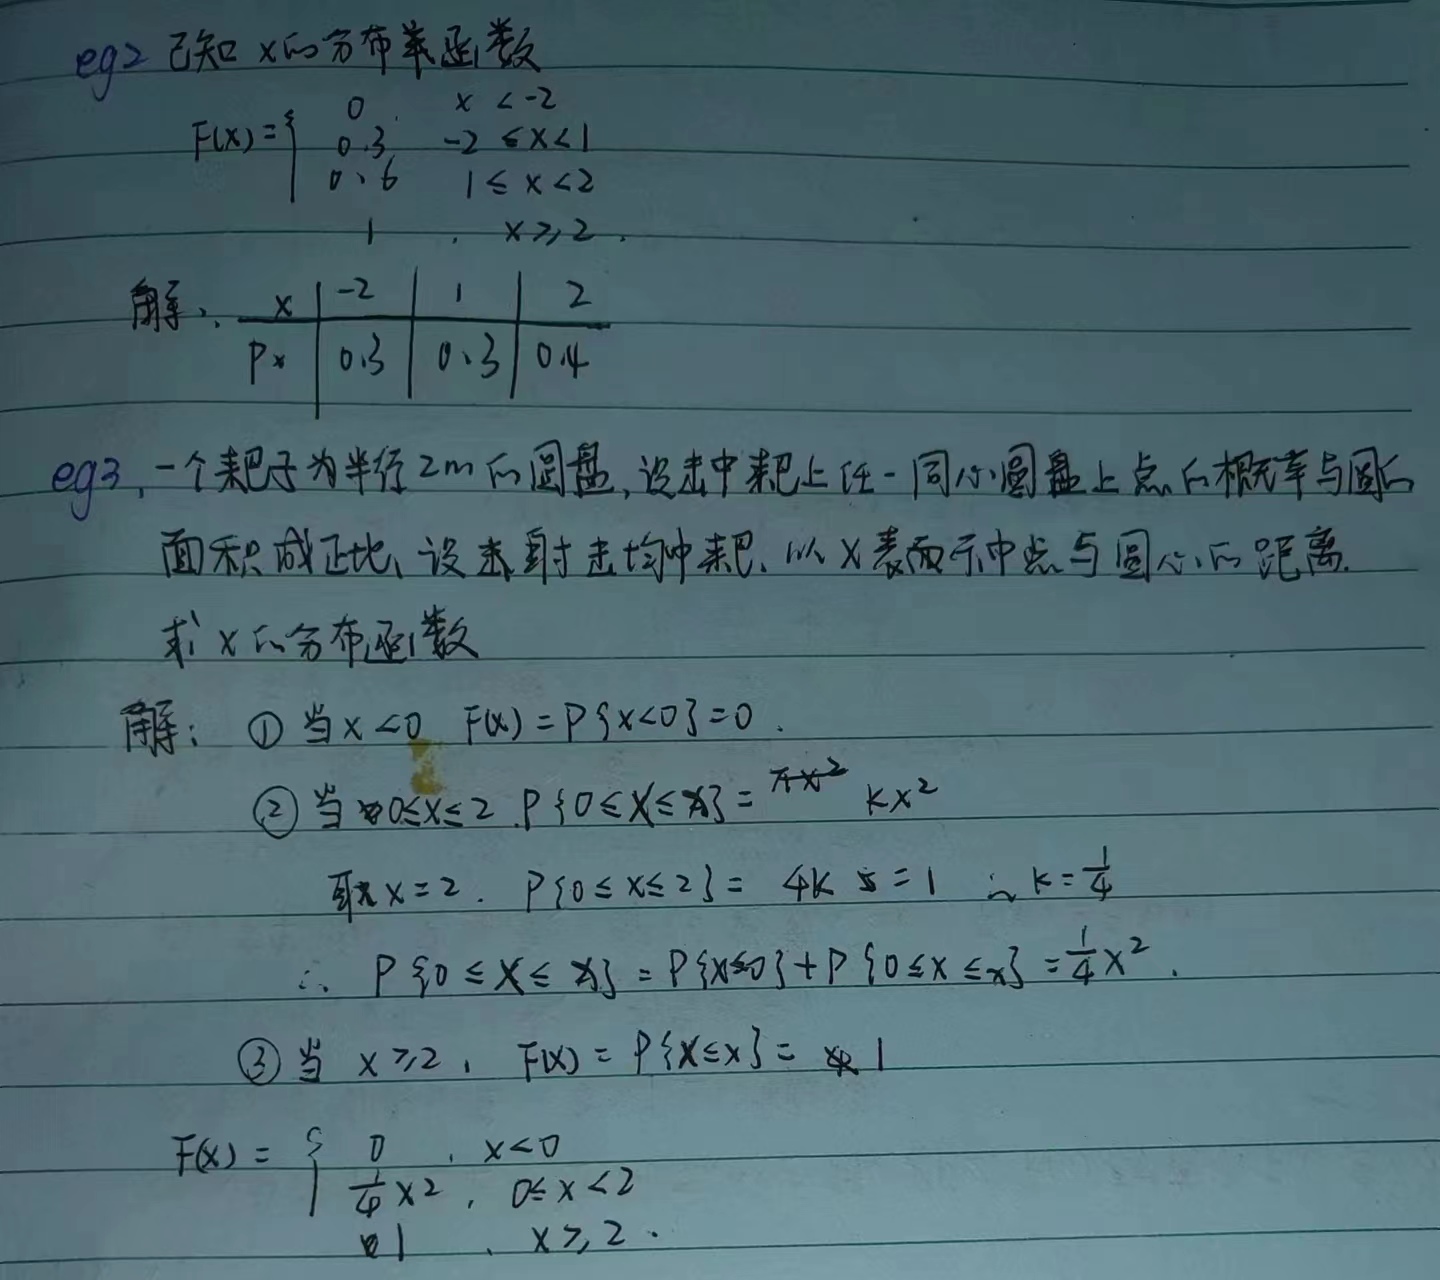 eg2 已知 x的分布率函数
F(x)={ 0, x < -2
0.3 -2 ≤ x < 1
0.6 1 ≤ x < 2
1, x ≥ 2.
解: x | -2 | 1 | 2
Px | 0.3 | 0.3 | 0.4
eg3, 一个耙子为半径2m的圆盘,设击中耙上任一同心圆盘上点的概率与圆的
面积成正比,设射击均中耙.以X表示中点与圆心的距离.
求X的分布函数
解: ① 当x<0 F(x)=P{x<0}=0.
② 当0≤x≤2. P{0≤X≤x}= πx² kx²
取x=2. P{0≤x≤2}= 4k =1 ∴ k=1/4
∴ P{0≤X≤x}=P{x≤0}+P{0≤x≤x}=1/4x².
③ 当 x≥2, F(x)=P{X≤x}= 1
F(x)={ 0, x<0
1/4x², 0≤x<2
1, x≥2.